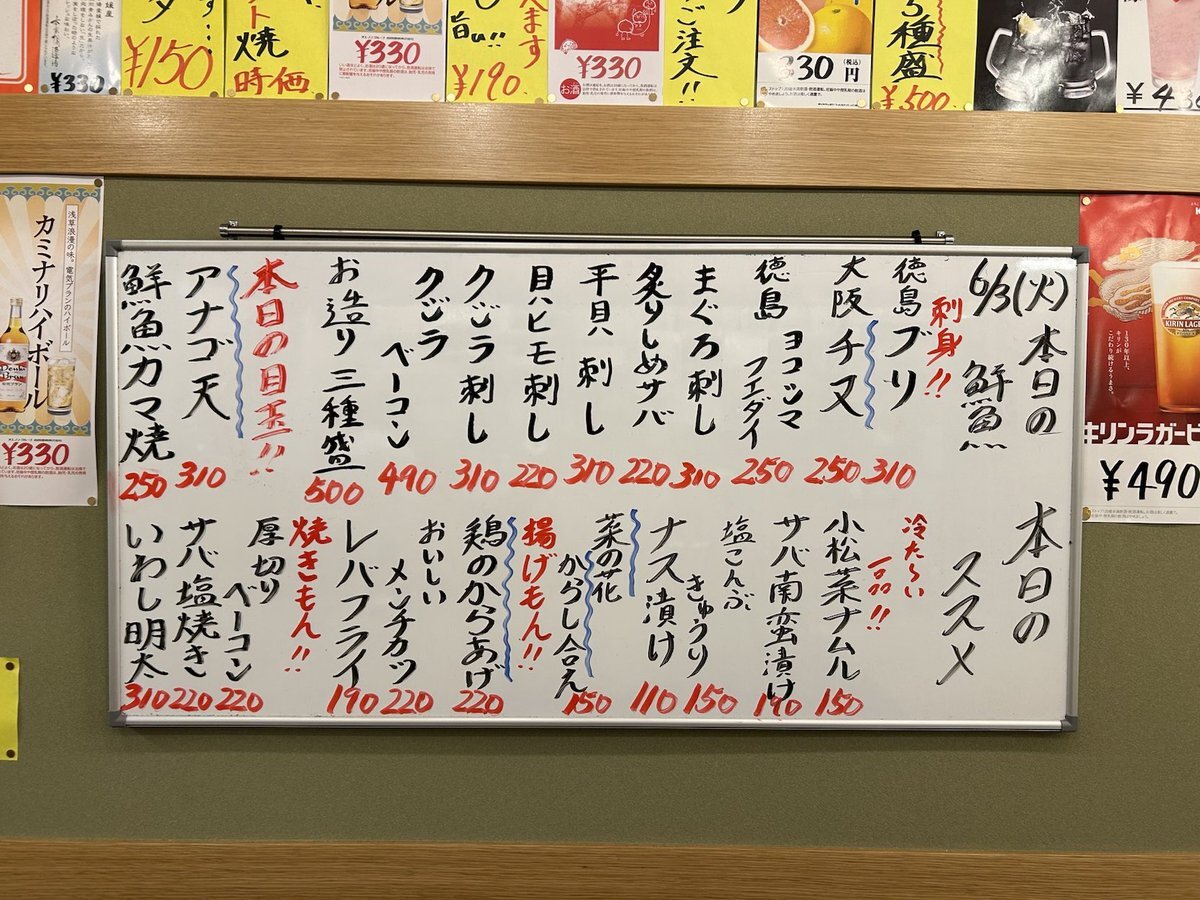 ¥330
¥150
焼
時価
¥330
旨い!!
¥190
ます
¥330
お酒
ご注文!!
330円
(税込)
5種盛
¥500
浅草浪漫の味。電気ブランのハイボール
カミナリハイボール
¥330
6/3(火)本日の
鮮魚
刺身!!
徳島ブリ
310
大阪チヌ
250
徳島
ヨコシマ
フエダイ
250
まぐろ刺し
310
炙りしめサバ
220
平貝刺し
310
貝ヒモ刺し
220
クジラ刺し
310
クジラ
ベーコン
490
お造り三種盛
500
本日の目玉!!
アナゴ天
310
鮮魚カマ焼
250
本日の
ススメ
冷た〜い
一品!!
小松菜ナムル
150
サバ南蛮漬け
190
塩こんぶ
きゅうり
150
ナス漬け
110
菜の花
からし合え
150
揚げもん!!
鶏のからあげ
220
おいしい
メンチカツ
220
レバフライ
190
焼きもん!!
厚切り
ベーコン
220
サバ塩焼き
220
いわし明太
310
130年以上、
キリンが
こだわり続けるうまさ。
KIRIN LAGER
キリンラガービ
¥490